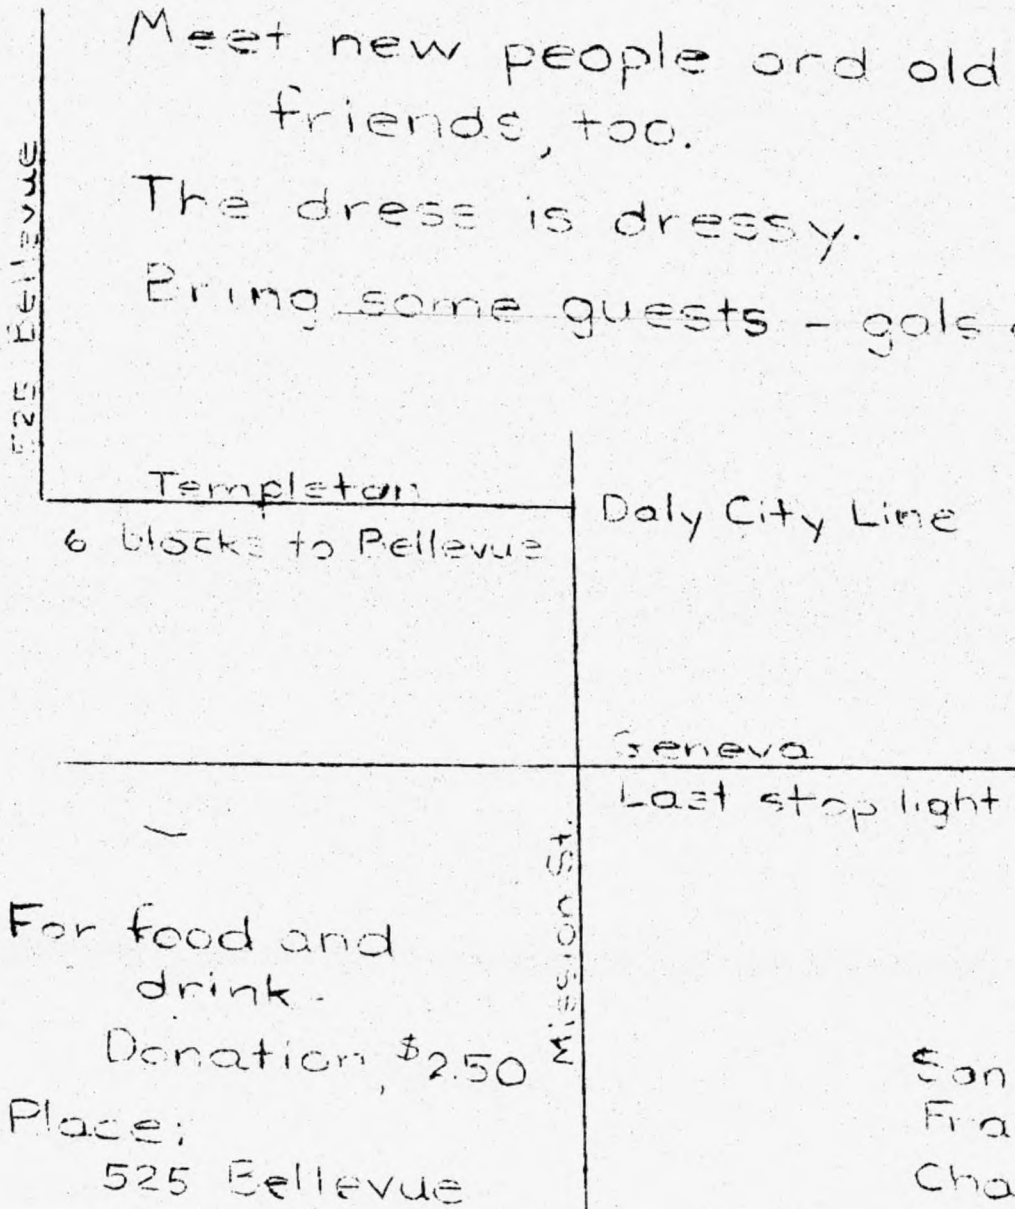 Meet new people and old
friends, too.
The dress is dressy.
Bring some guests - gals
525 Bellevue
Templeton
6 blocks to Bellevue
Daly City Line
Geneva
Last stop light
Mission St.
For food and
drink.
Donation, $2.50
Place:
525 Bellevue
San
Fra
Cha